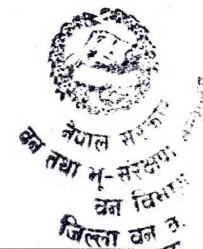 नेपाल सरकार
वन तथा भू-संरक्षण
वन विभाग
जिल्ला वन